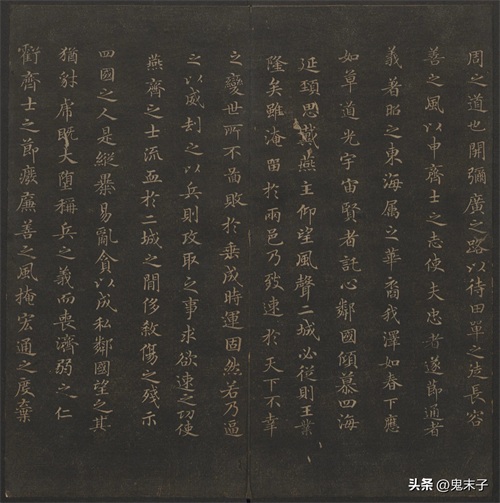 周之道也開彌廣之路以待田單之徒長容
善之風以申齊士之志使夫忠者遂節通者
義著昭之東海屬之華裔我澤如春下應
如草道光宇宙賢者託心鄰國傾慕四海
延頸思戴燕主仰望風聲二城必從則王業
隆矣雖淹留於兩邑乃致速於天下不幸
之變世所不啚敗於垂成時運固然若乃逼
之以威劫之以兵則攻取之事求欲速之功使
燕齊之士流血於二城之間侈敚傷之殘示
四國之人是縱暴易亂貪以成私鄰國望之其
猶豺虎既大墮稱兵之義而喪濟弱之仁
虧齊士之節癈廉善之風掩宏通之度棄
头条 @鬼末子